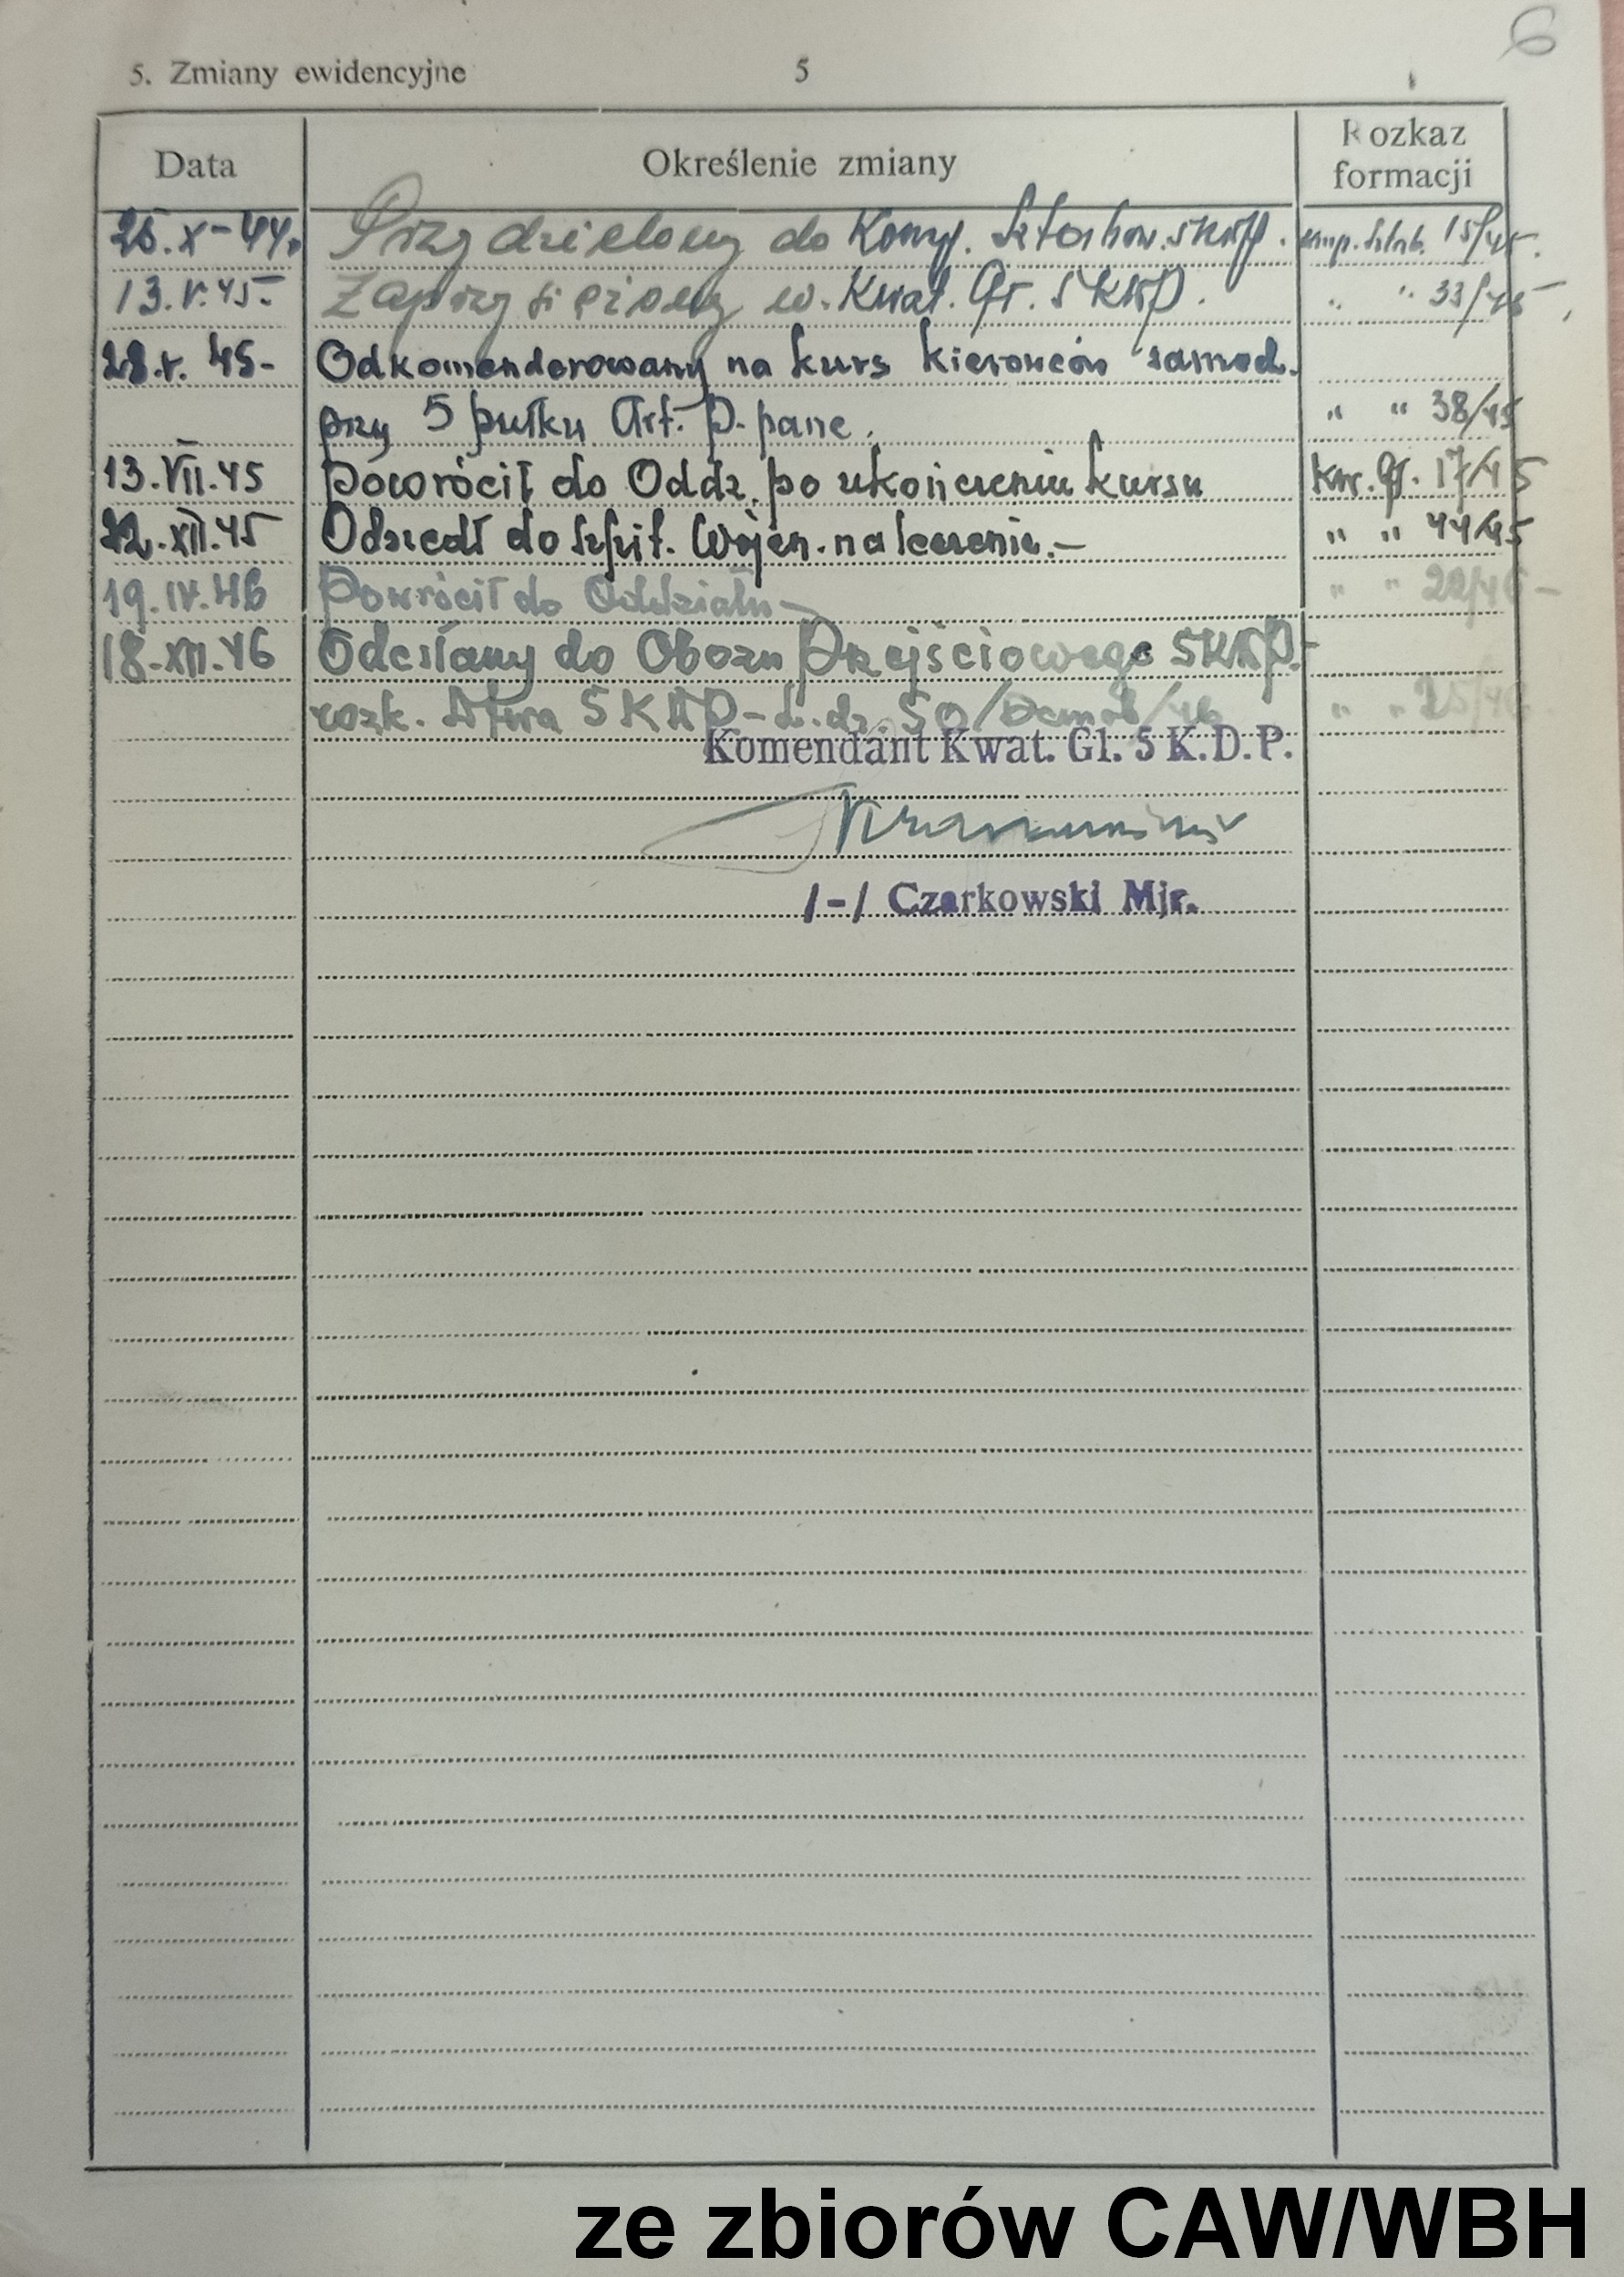 6
5. Zmiany ewidencyjne 5
Data Określenie zmiany Rozkaz formacji
25.X-44. Przydzielony do Komp. Sztabow. 5KDP. Komp. Sztab. 15/45.
13.V.45- Zaprzysiężony w Kwat. Gł. 5 KDP. " " 33/45-
28.V.45- Odkomenderowany na kurs kierowców samod.
przy 5 pułku Art. P. panc. " " 38/45
13.VII.45 Powrócił do Oddz. po ukończeniu kursu Kw. Gł. 17/45
22.XII.45 Odszedł do Szpit. Wojen. na leczenie.- " " 44/45
19.IV.46 Powrócił do Oddziału- " " 22/46-
18.XII.46 Odesłany do Obozu Przejściowego 5KDP.-
rozk. D-twa 5 KDP-L.dz. 50/Demob/46 " " 25/46-
Komendant Kwat. Gł. 5 K.D.P.
/-/ Czarkowski Mjr.
ze zbiorów CAW/WBH